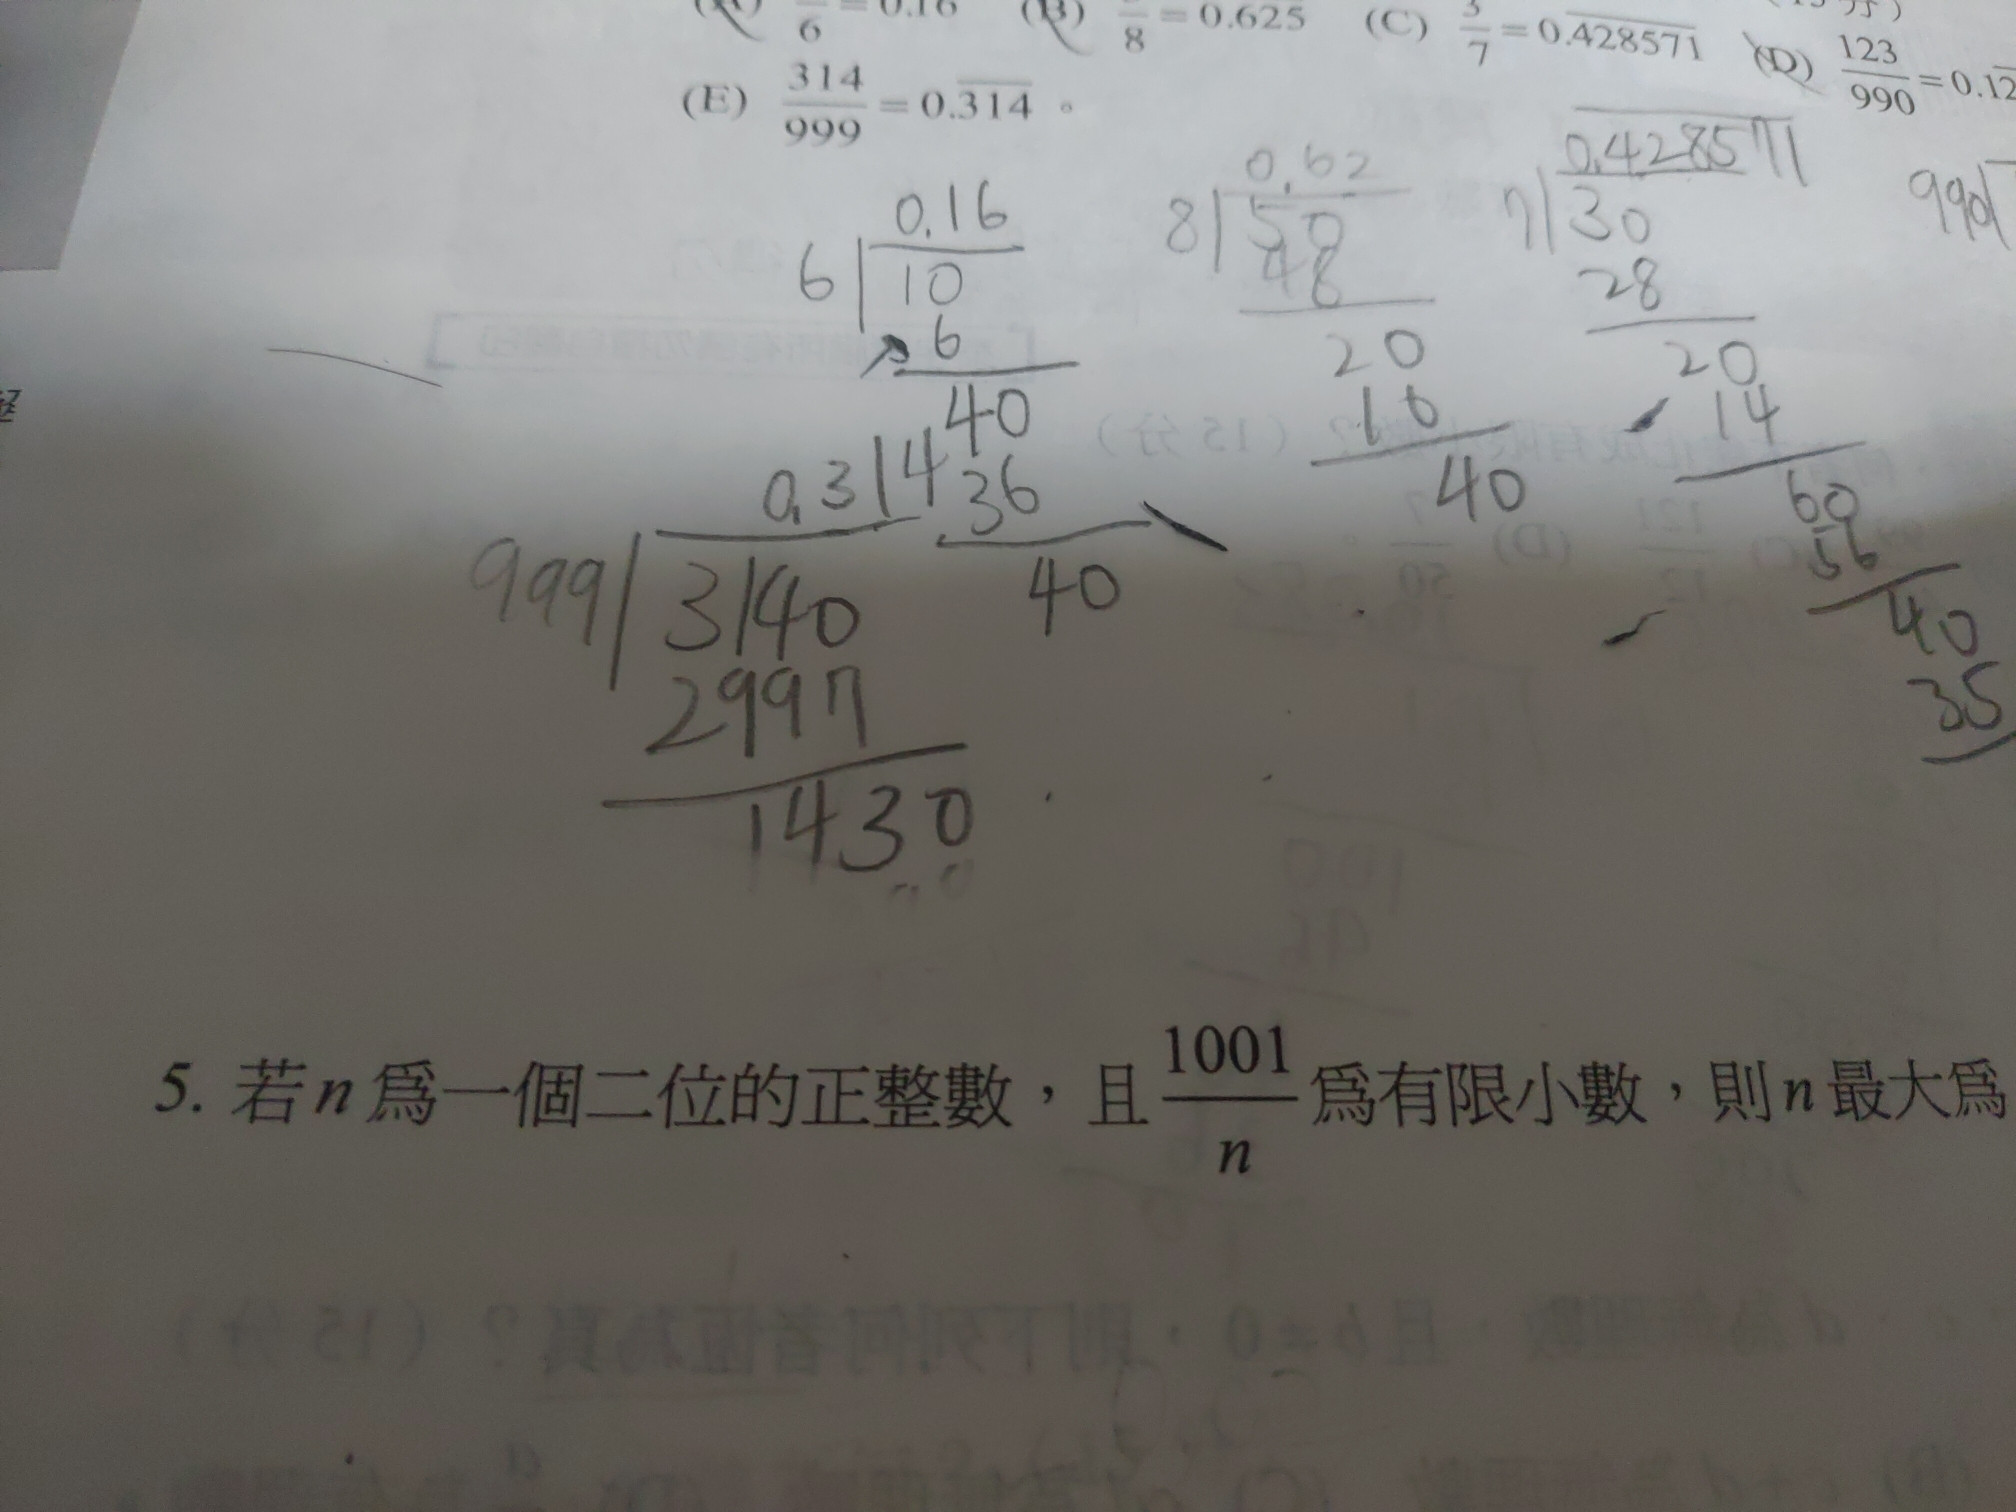 6 = 0.16 (B) 8 = 0.625 (C) 3/7 = 0.428571 (D) 123/990 = 0.12
(E) 314/999 = 0.314。
0.16
6 10
6
40
36
40
0.62
8 50
48
20
16
40
0.428571
7 30
28
20
14
60
56
40
35
990
0.314
999 3140
2997
1430
5. 若n為一個二位的正整數，且 1001/n 為有限小數，則n最大為